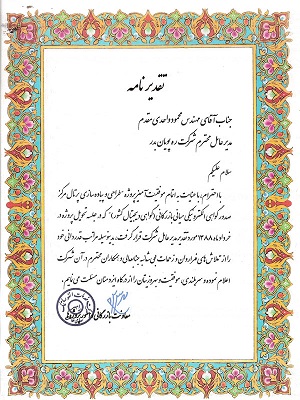 تقدیر نامه
جناب آقای مهندس محمود واحدی مقدم
مدیر عامل محترم شرکت ره پویان پدر
سلام علیکم
با احترام، با عنایت به اتمام موفقیت آمیز پروژه "طراحی و پیاده سازی پرتال مرکز
صدور گواهی الکترونیکی میانی بازرگانی (گواهی دیجیتال کشور)" که در جلسه تحویل پروژه در
خرداد ماه ۱۳۸۸ مورد تقدیر مدیر عامل شرکت قرار گرفت، بدینوسیله مراتب قدردانی خود
را از تلاش های فراوان و زحمات بی شائبه جنابعالی و همکاران محترم در آن شرکت
اعلام نموده و سربلندی، موفقیت و بهروزیتان را از درگاه ایزد منان مسئلت می نمایم.
معاونت بازرگانی